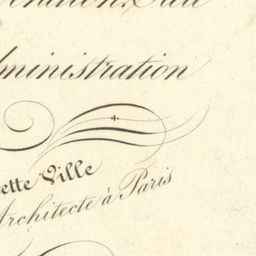 ministration
ette Ville
Architecte à Paris